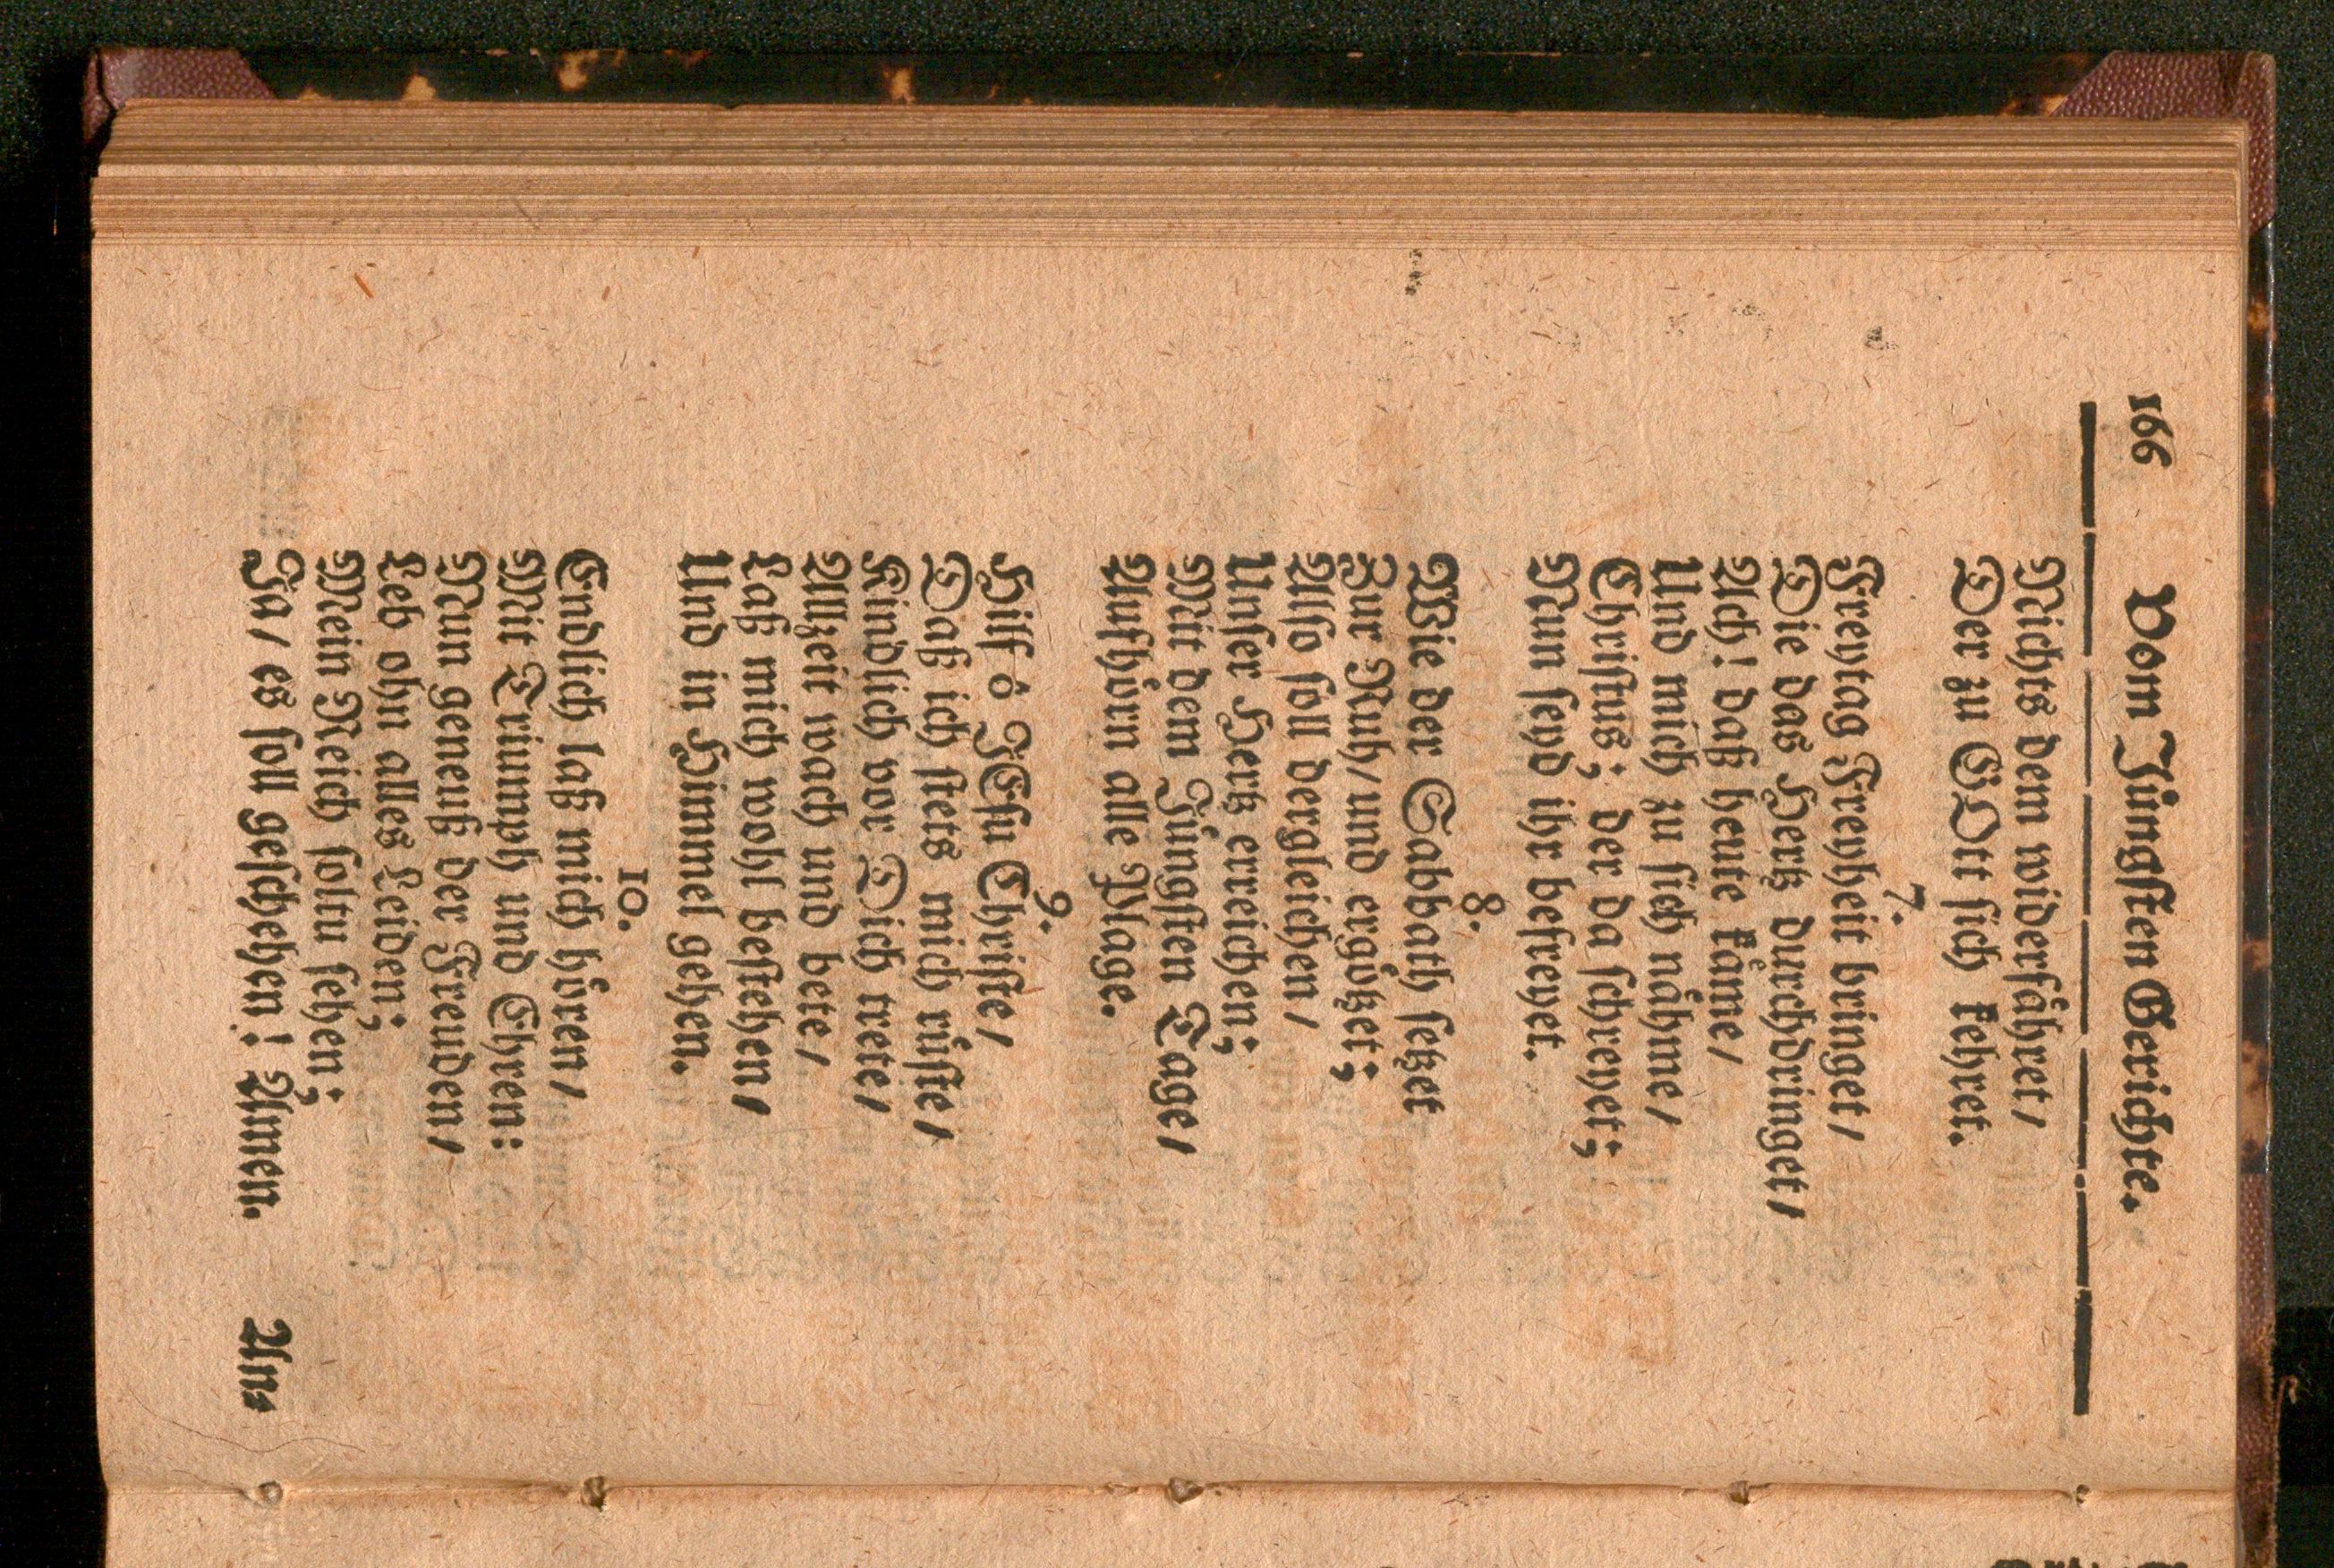 166 Vom Jüngſten Gerichte.
Nichts dem widerfåhret/
Der zu GOtt ſich kehret.
7.
Freytag Freyheit bringet/
Die das Hertz durchdringet/
Ach! daß heute kåme/
Und mich zu ſich nåhme/
Chriſtus; der da ſchreyet;
Nun ſeyd ihr befreyet.
8.
Wie der Sabbath ſetzet
Zur Ruh/ und ergoͤtzet;
Alſo ſoll dergleichen/
Unſer Hertz erreichen;
Mit dem Juͤngſten Tage/
Aufhoͤrn alle Plage.
9.
Hilff ô JEſu Chriſte/
Daß ich ſtets mich ruͤſte/
Kindlich vor Dich trete/
Allzeit wach und bete/
Laß mich wohl beſtehen/
Und in Himmel gehen.
10.
Endlich laß mich hoͤren/
Mit Triumph und Ehren:
Nun geneuß der Freuden/
Leb ohn alles Leiden;
Mein Reich ſoltu ſehen;
Ja/ es ſoll geſchehen! Amen.
An⸗